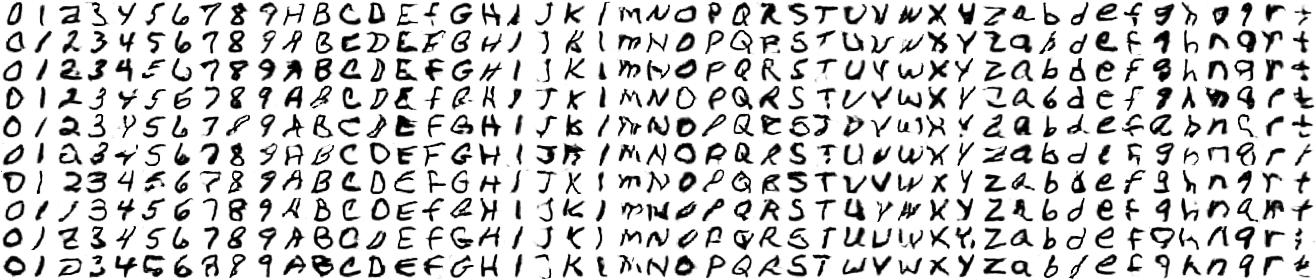 0 1 2 3 4 5 6 7 8 9 A B C D E f G H I J K I m N O P Q R S T U V W X Y Z a b d e f g h n q r t
0 1 2 3 4 5 6 7 8 9 A B C D E F G H I J K I m N O P Q R S T U V W X Y Z a b d e f g h n q r t
0 1 2 3 4 5 6 7 8 9 A B C D E f G H I J K I m N O P Q R S T U V W X Y Z a b d e f g h n g r t
0 1 2 3 4 5 6 7 8 9 A B C D E f G H I J K I m N O P Q R S T U V W X Y Z a b d e f g h n g r t
0 1 2 3 4 5 6 7 8 9 A B C D E F G H I J K I m N O P Q R S T U V W X Y Z a b d e f a b n q r t
0 1 2 3 4 5 6 7 8 9 A B C D E F G H I J K I m N O P Q R S T U V W X Y Z a b d e f g h n g r t
0 1 2 3 4 5 6 7 8 9 A B C D E F G H I J K I m N O P Q R S T U V W X Y Z a b d e f g h n g r t
0 1 2 3 4 5 6 7 8 9 A B C D E f G H I J K I m N O P Q R S T U V W X Y Z a b d e f g h n q r t
0 1 2 3 4 5 6 7 8 9 A B C D E F G H I J K I m N O P Q R S T U V W X Y Z a b d e f g h n q r t
0 1 2 3 4 5 6 7 8 9 A B C D E F G H I J K I m N O P Q R S T U V W X Y Z a b d e f g h n g r t